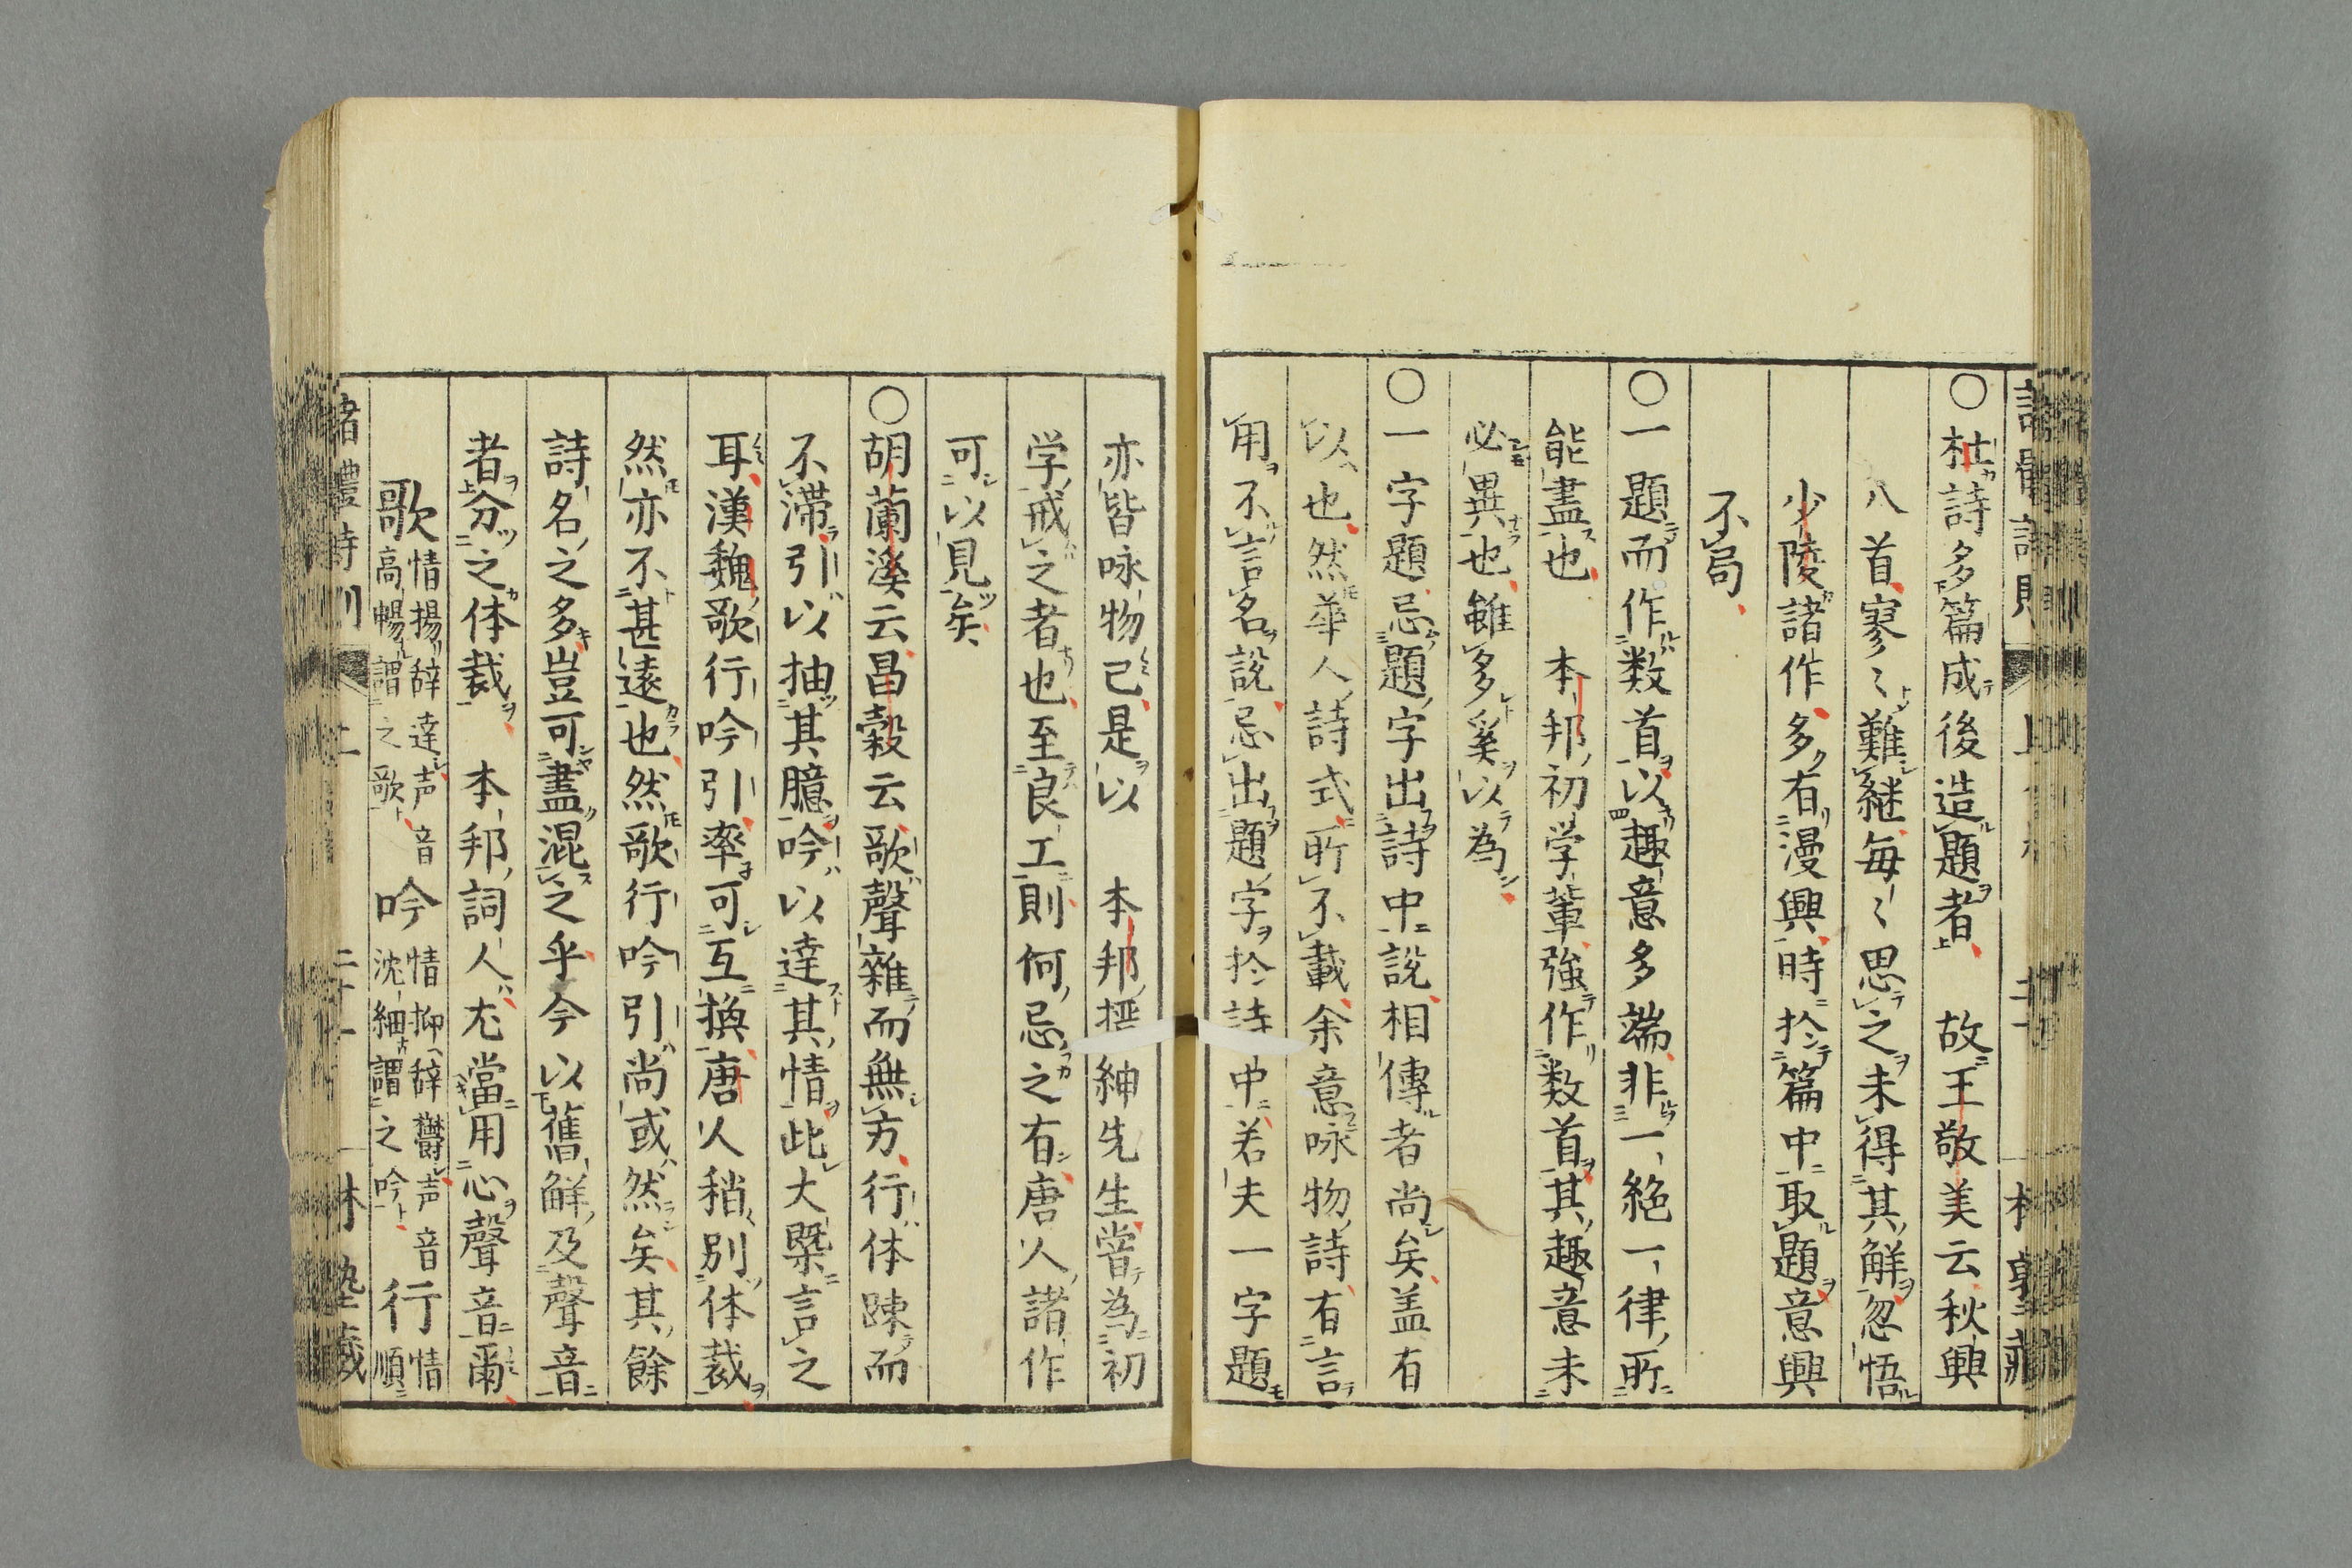 ○杜詩多篇成後造題者故王敬美云秋興
八首寥〻難継毎〻思之未得其解忽悟
少陵諸作多有漫興時於篇中取題意興
不局
○一題而作数首以趣意多端非一絶一律所
能盡也本邦初学輩強作数首其趣意未
必異也雖多奚以為
○一字題忌題字出詩中説相傳者尚矣盖有
以也然華人詩式所不載余意咏物詩有言
用不言名説忌出題字於詩中若夫一字題
亦皆咏物已是以本邦搢紳先生嘗為初
学戒之者也至良工則何忌之有唐人諸作
可以見矣
○胡蘭溪云昌穀云歌聲雜而無方行体踈而
不滞引以抽其臆吟以達其情此大槩言之
耳漢魏歌行吟引率可互換唐人稍別体裁
然亦不甚遠也然歌行吟引尚或然矣其餘
詩名之多豈可盡混之乎今以舊解及聲音
者分之体裁本邦詞人尤當用心聲音爾
歌情揚辞達声音高暢謂之歌吟情抑辞鬱声音沈細謂之吟行情順